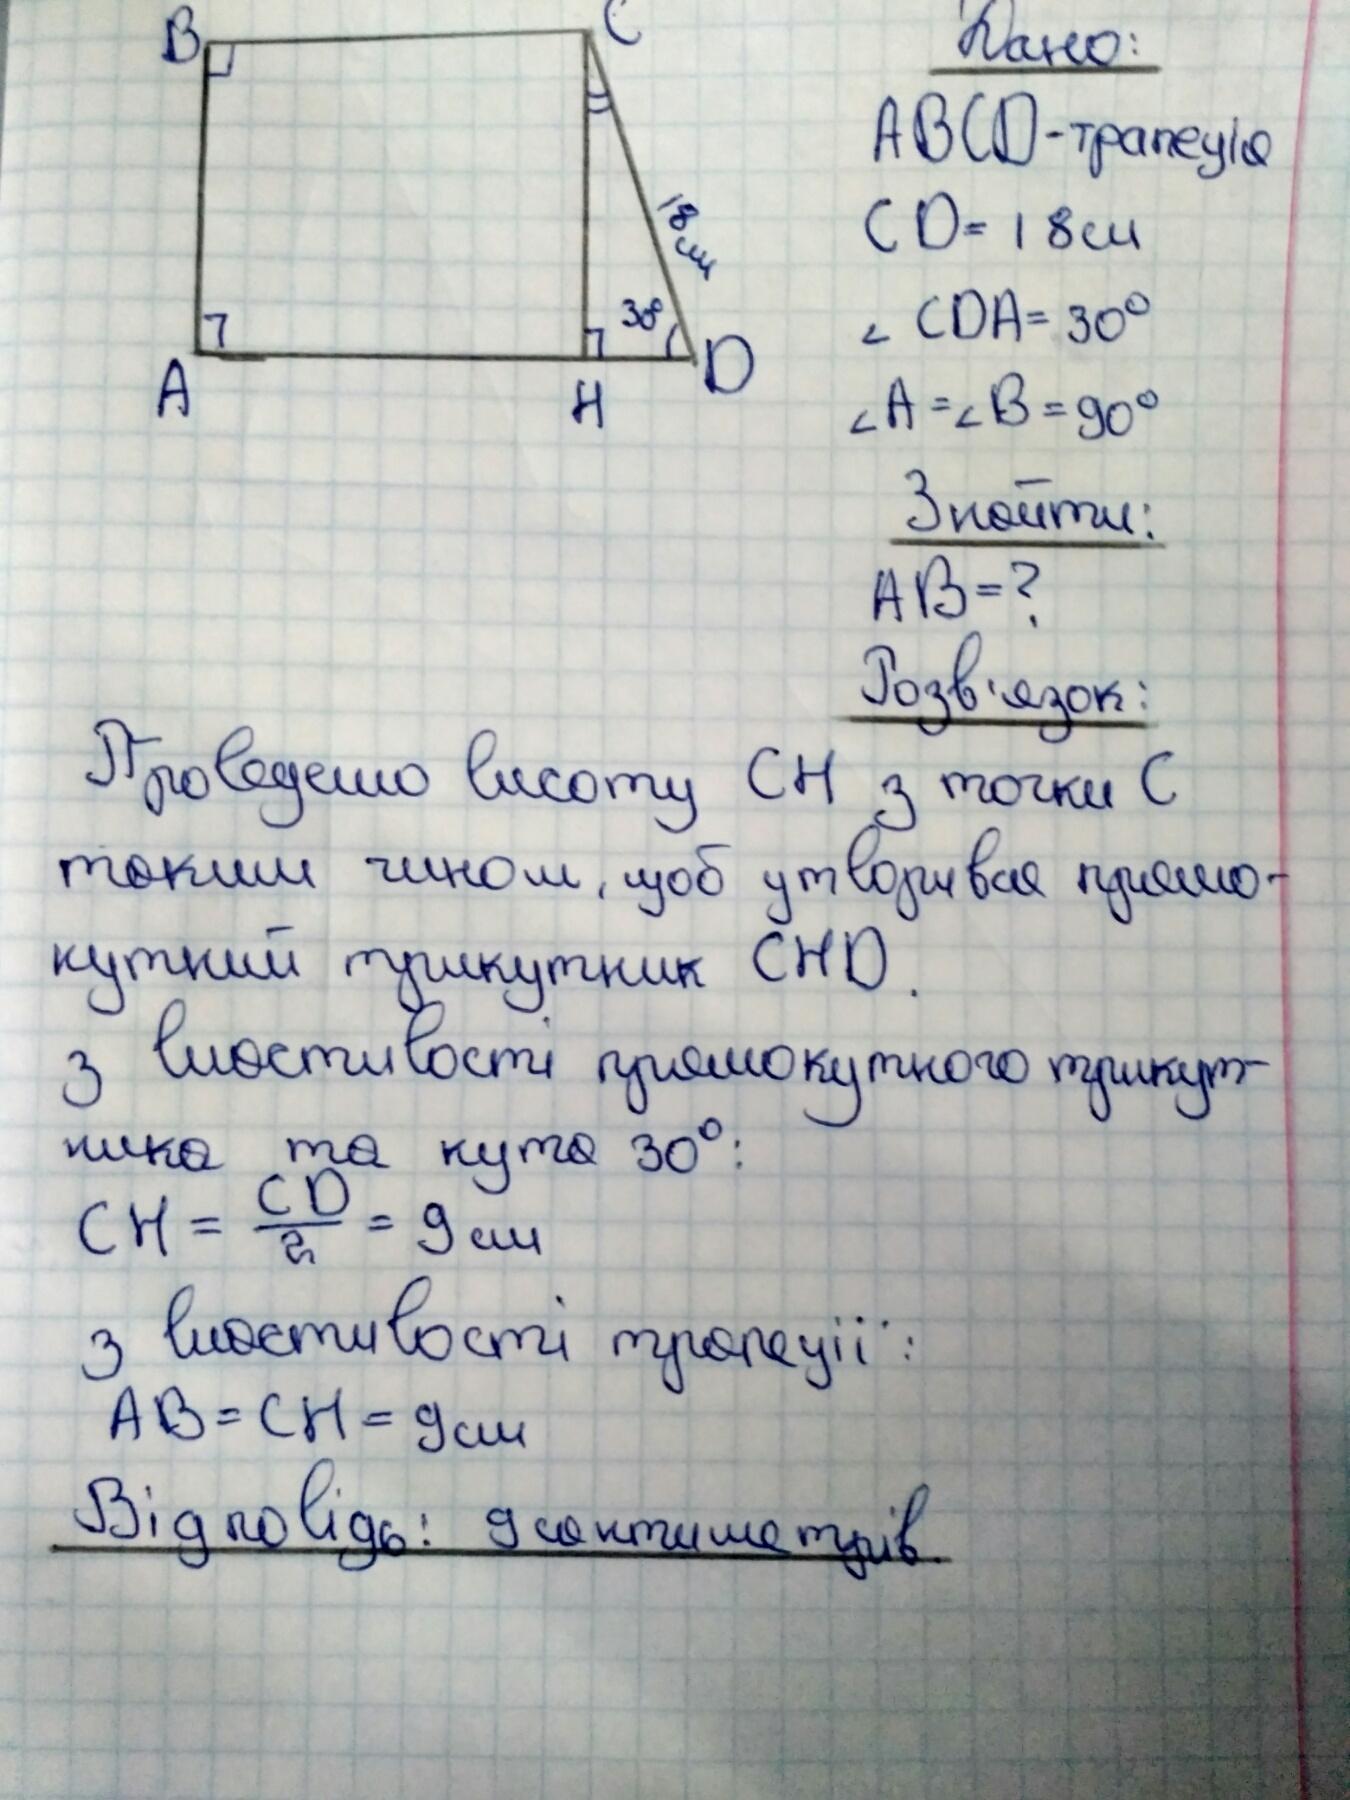 B
C
18 см
30°
A
H
D
Дано:
ABCD - трапеція
CD = 18 см
∠ CDA = 30°
∠A = ∠B = 90°
Знайти:
AB = ?
Розв'язок:
Проведемо висоту CH з точки C
таким чином, щоб утворився прямо-
кутний трикутник CHD.
З властивості прямокутного трикут-
ника та кута 30°:
CH = CD/2 = 9 см
З властивості трапеції:
AB = CH = 9 см
Відповідь: 9 сантиметрів.